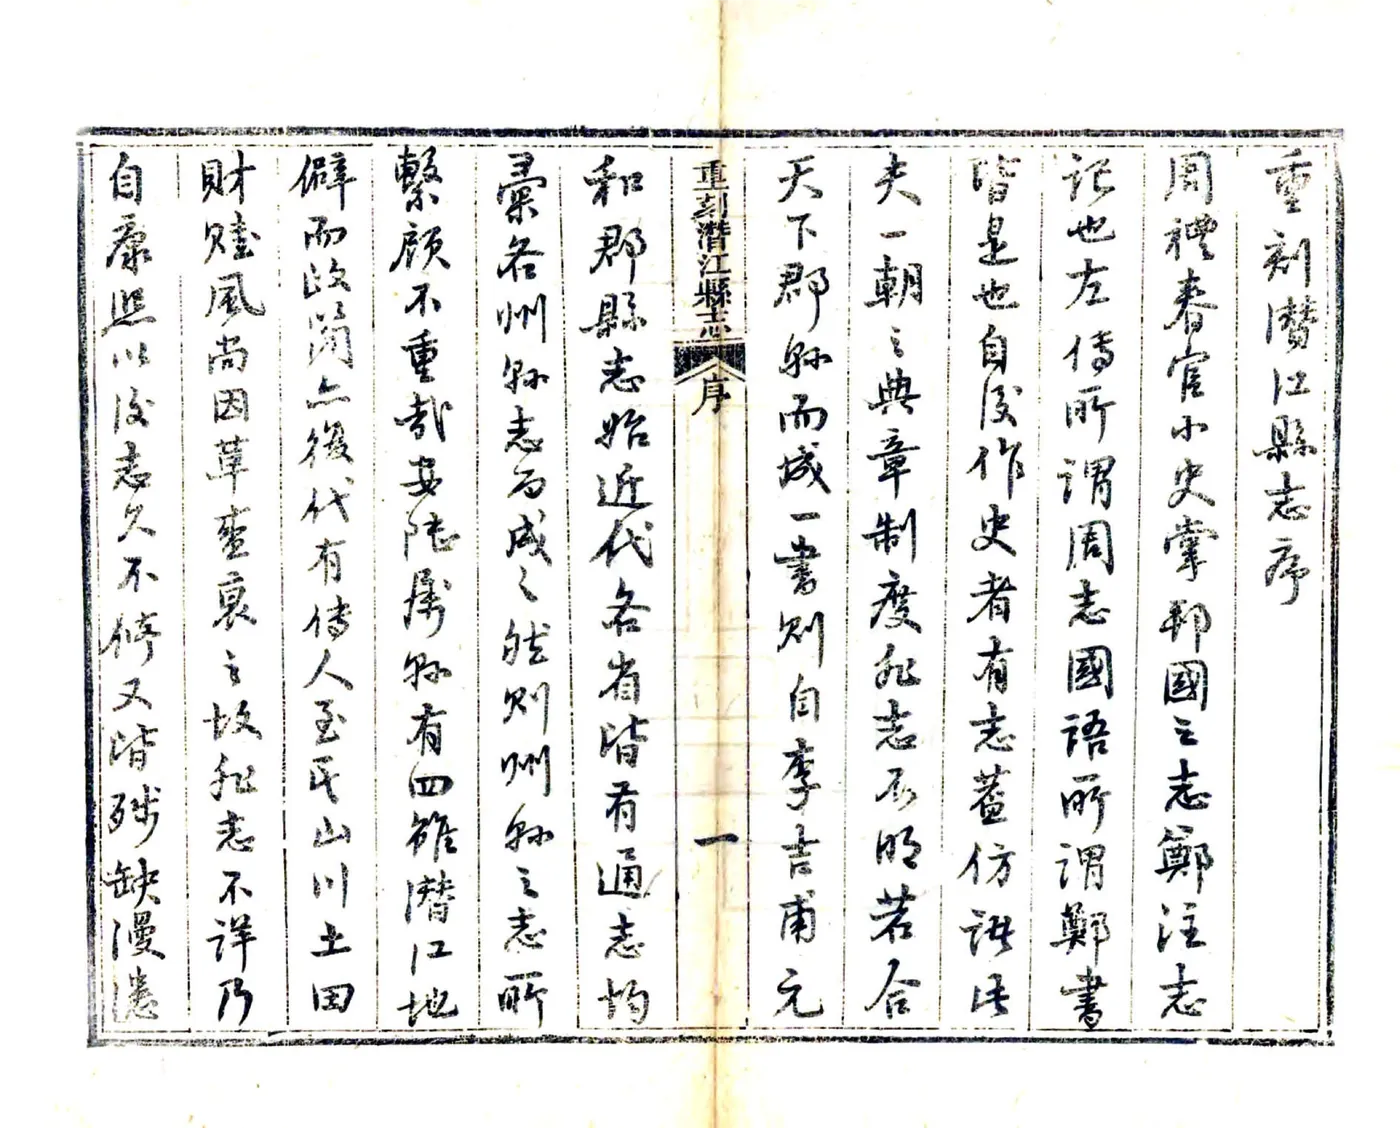 重刻潛江縣志序
周禮春官小史掌邦國之志鄭注志
記也左傳所謂周志國語所謂鄭書
皆是也自後作史者有志蓋仿諸此
夫一朝之典章制度非志不明若合
天下郡縣而成一書則自李吉甫元
重刻潛江縣志 序 一
和郡縣志始近代各省皆有通志均
彙各州縣志而成之然則州縣之志所
繫顧不重哉安陸屬縣有四雖潛江地
僻而政簡亦後代有傳人至其山川土田
財賦風尚因革盛衰之故非志不詳乃
自康熙以後志久不修又皆殘缺漫漶